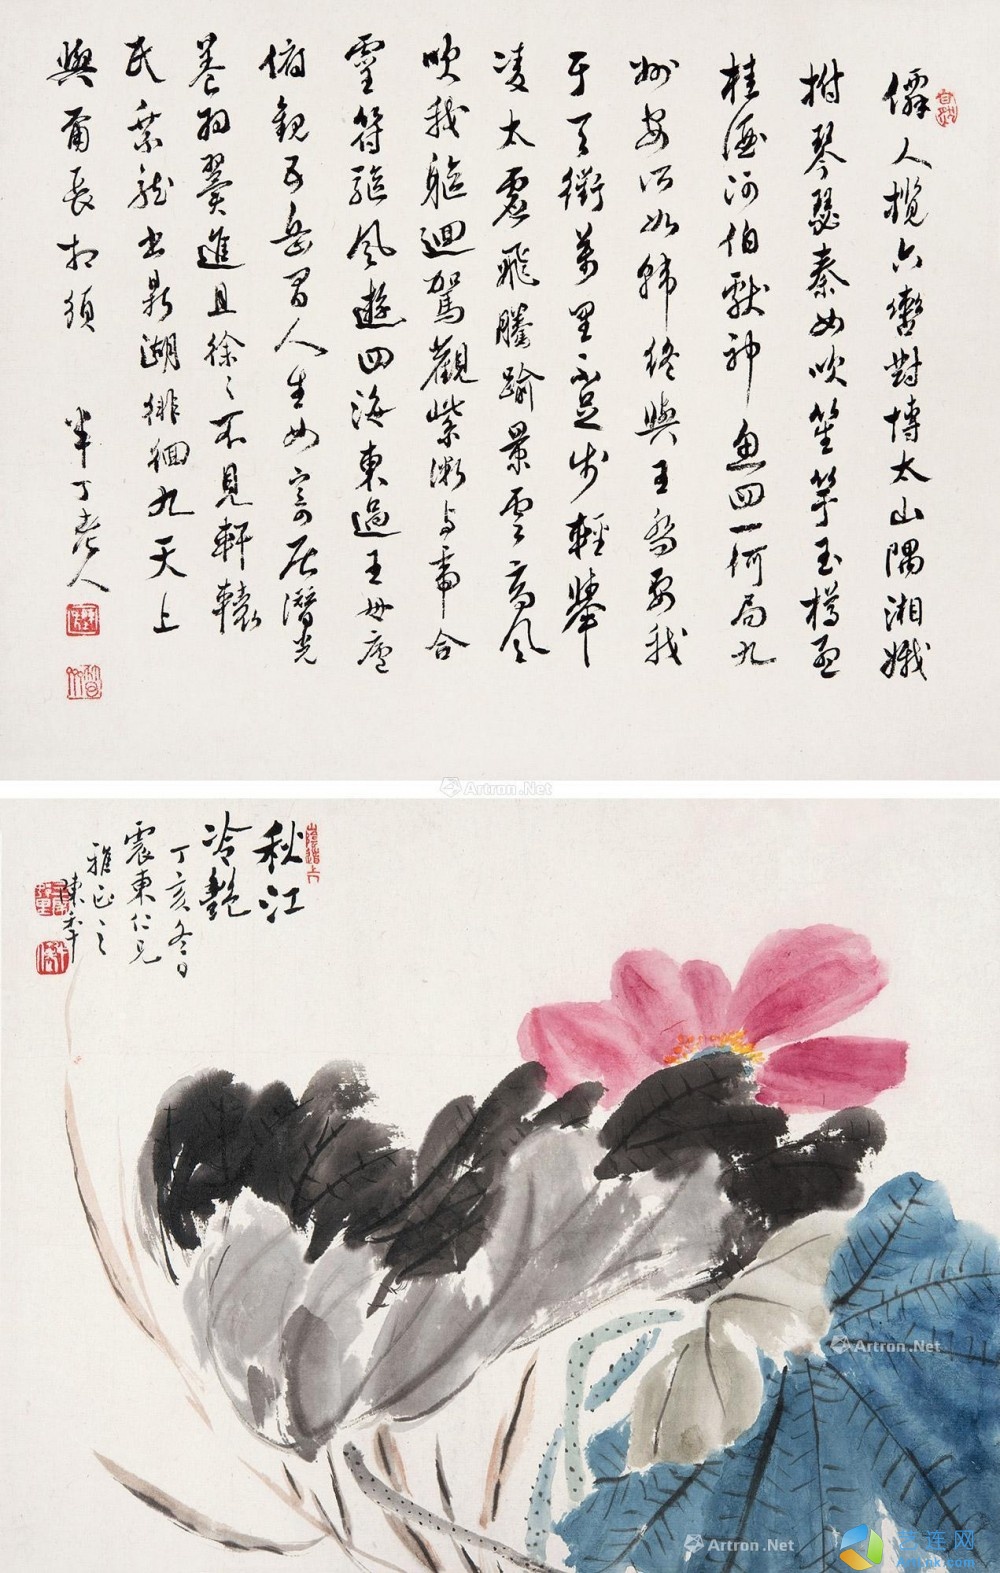 僊人攬六箸對博太山隅湘娥
拊琴瑟秦女吹笙竽玉樽盈
桂酒河伯獻神魚四一何局九
州安所如韓終與王喬要我
于天衢萬里不足步輕舉
凌太虛飛騰踰景雲高風
吹我軀迴駕觀紫微與帝合
靈符驅風遊四海東過王母廬
俯觀五岳間人生如寄居潛光
養羽翼進且徐〻不見軒轅
氏乘龍出鼎湖徘徊九天上
與爾長相須 半丁老人
Artron.Net
秋江
冷艷
丁亥冬日
震東仁兄
雅正之
陳年
Artron.Net
Artron.Net